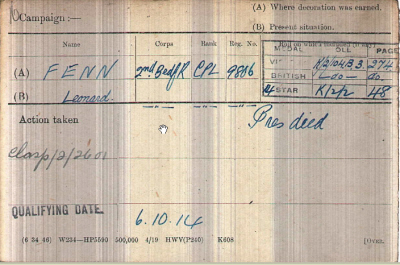 (A) Where decoration was earned.
Campaign:—
(B) Present situation.
Name Corps Rank Reg. No. Roll on which included (if any)
MEDAL ROLL PAGE
(A) FENN 2nd Bedf R CPL 9886
VI K/2/104B3. 274
BRITISH —do— do.
(B) Leonard. —"— —"—
STAR K/2/2 48
Action taken Pres died
Clasp/2/2601
QUALIFYING DATE. 6.10.14
(6 34 46) W234—HP5590 500,000 4/19 HWV(P240) K608 [OVER.